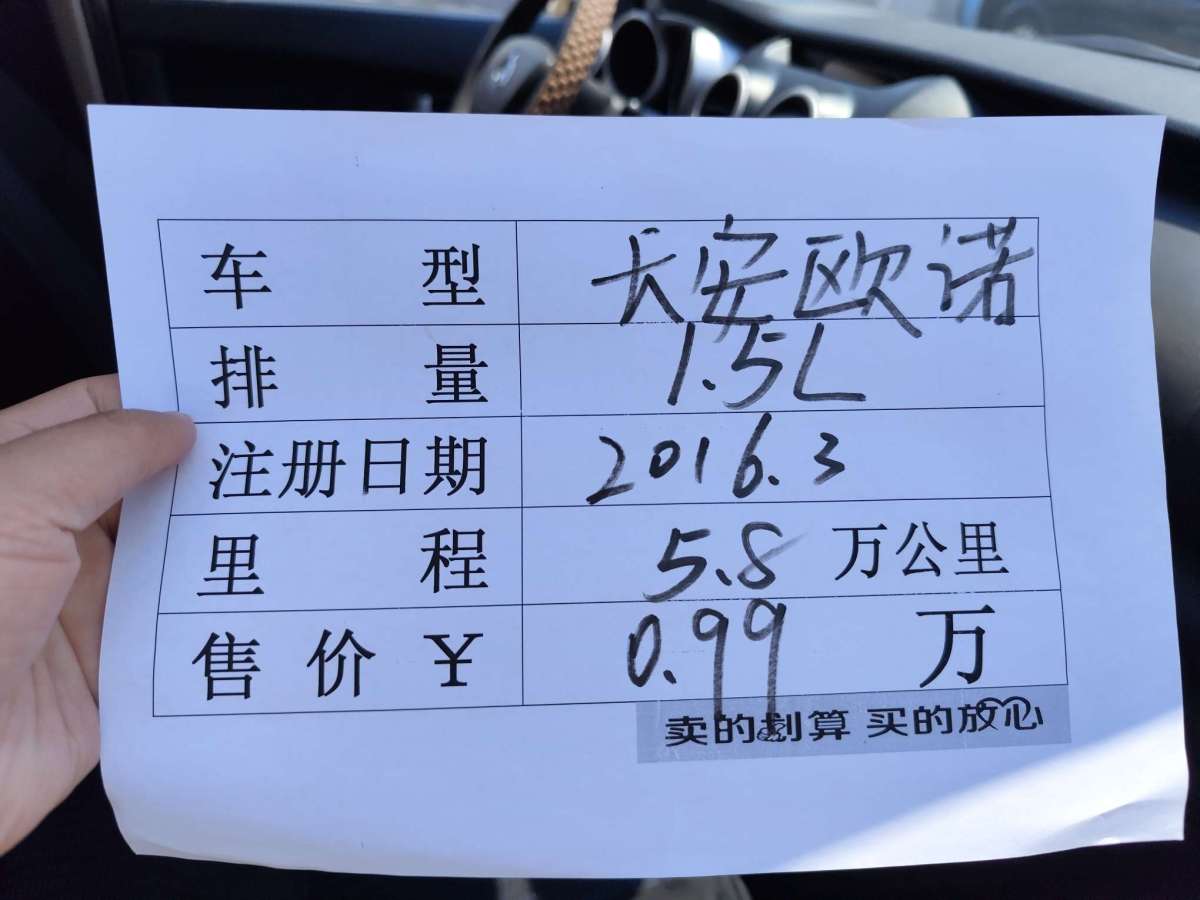 车型 长安欧诺
排量 1.5L
注册日期 2016.3
里程 5.8 万公里
售价¥ 0.99 万
卖的划算 买的放心